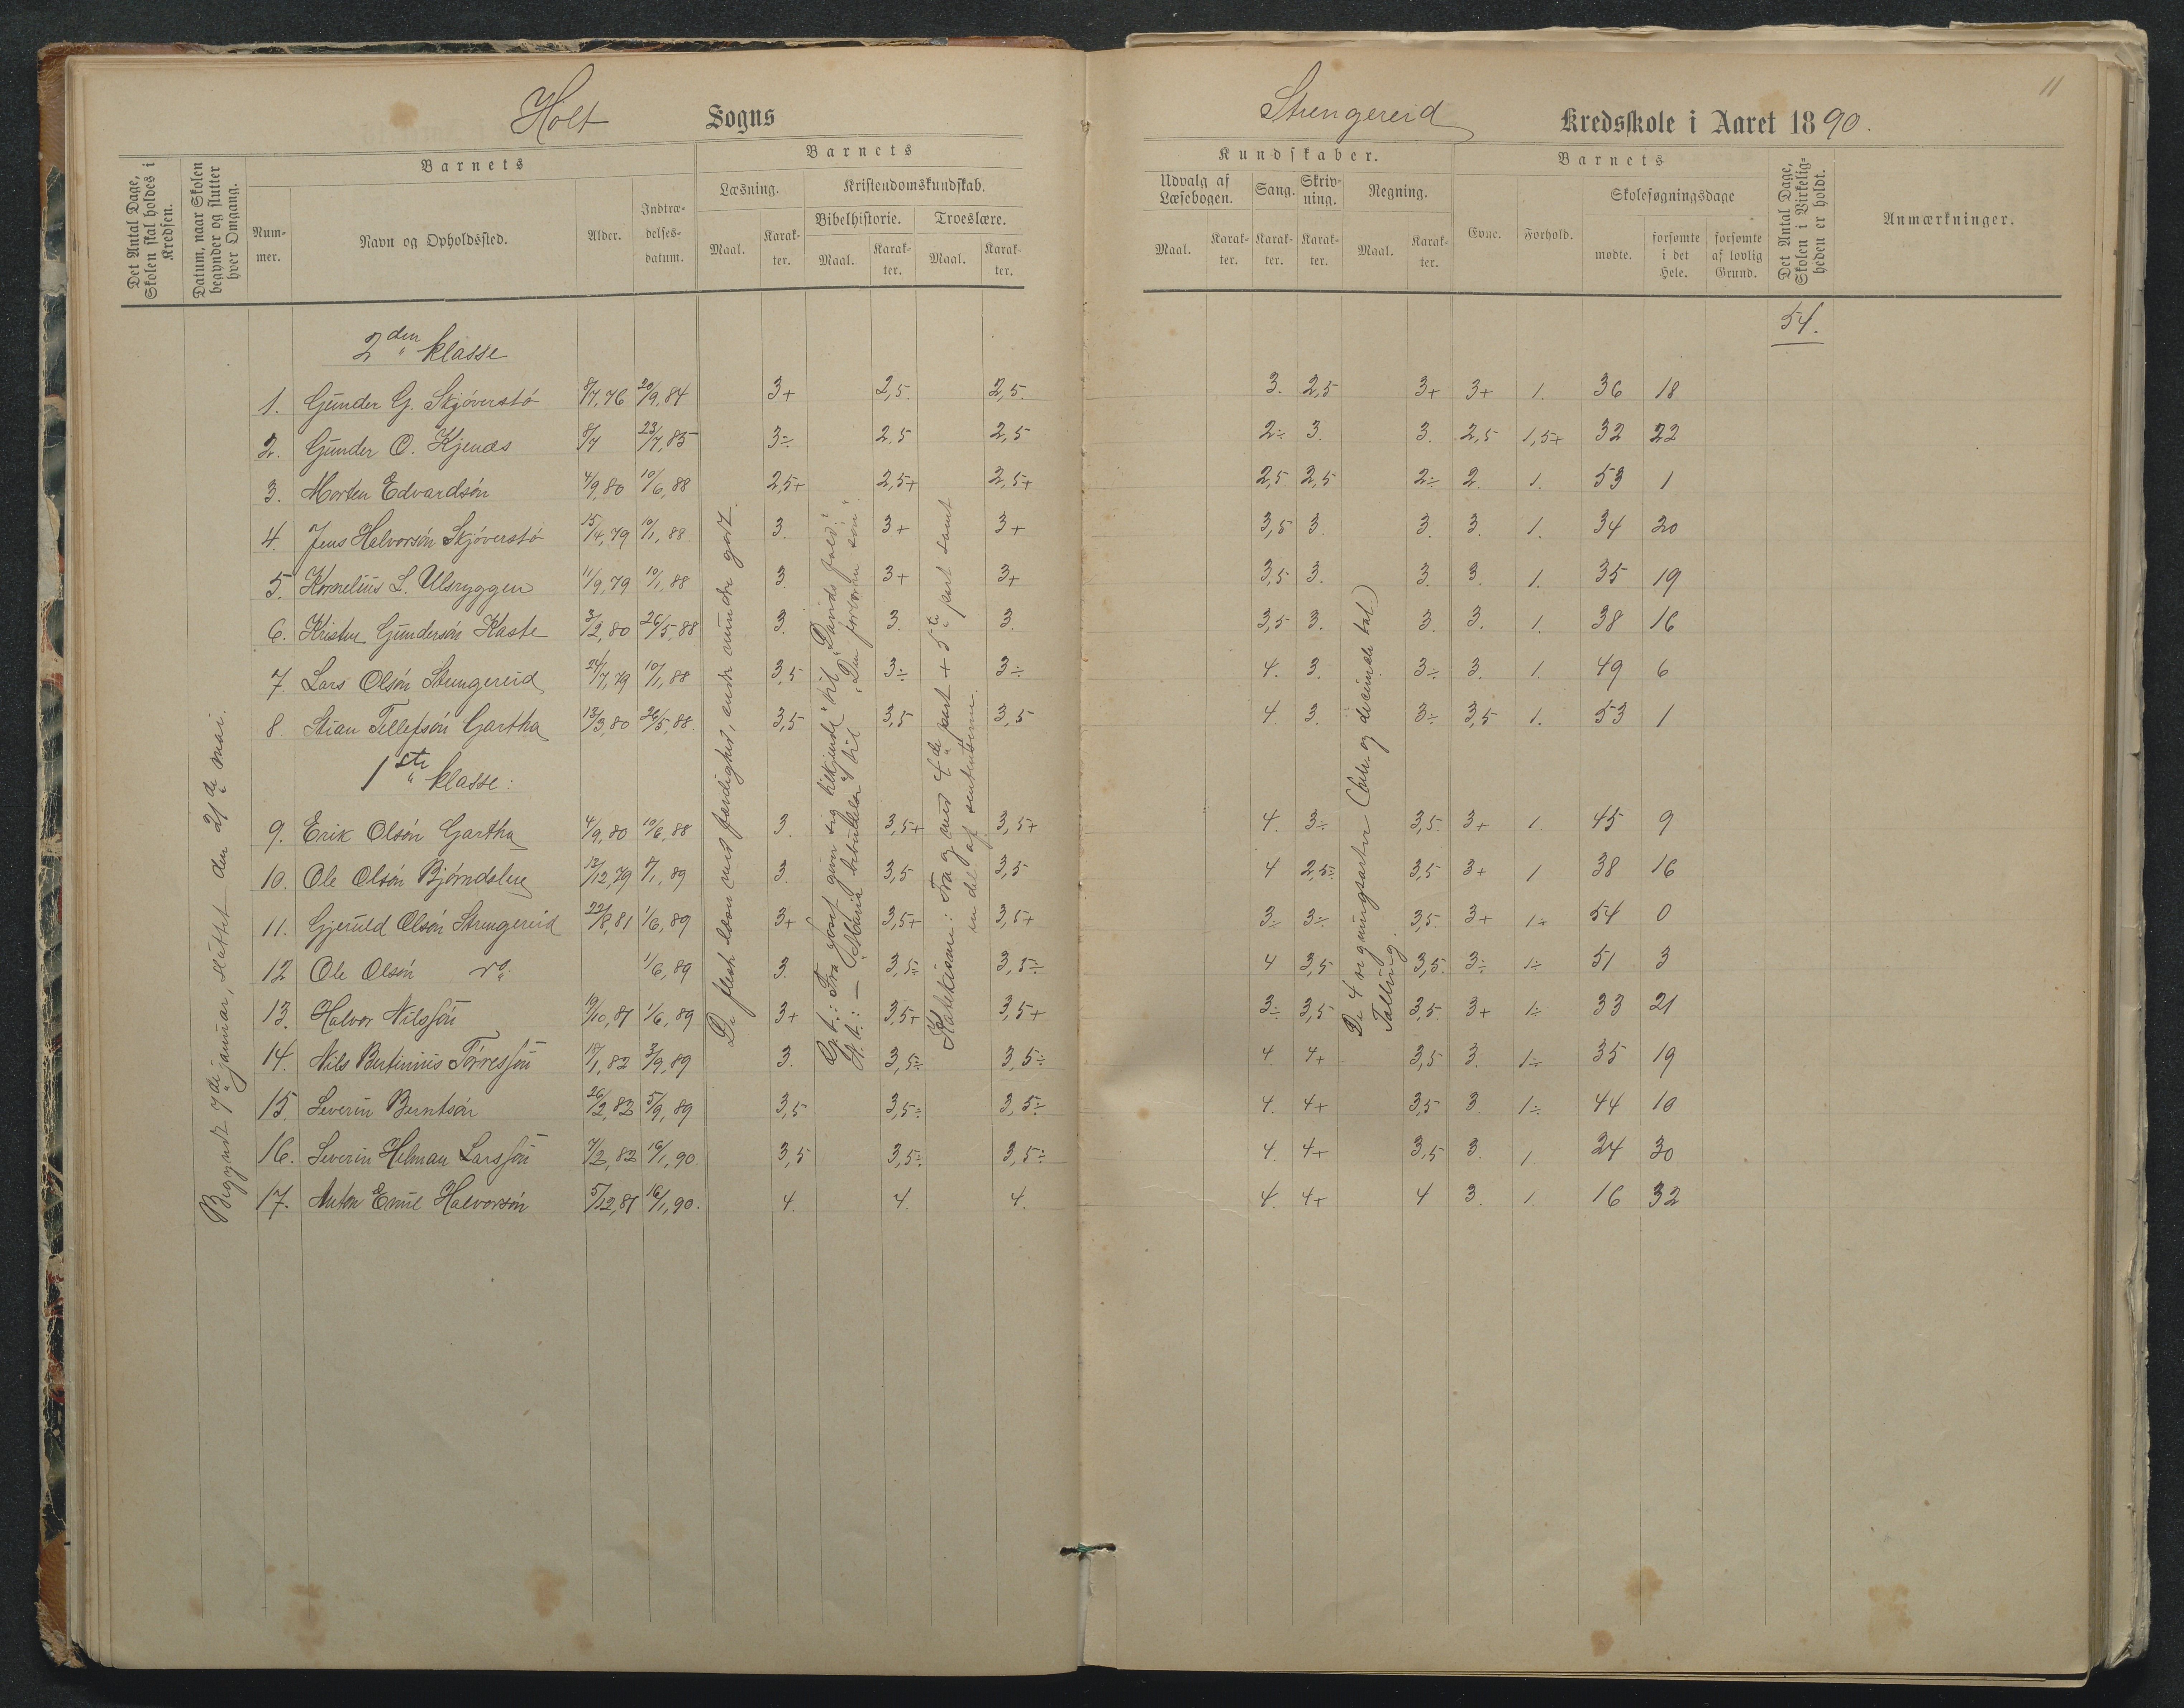 Holt Sogns
Barnets
Barnets
Det Antal Dage, Skolen skal holdes i Kredsen.
Datum, naar Skolen begynder og slutter hver Omgang.
Nummer.
Navn og Opholdssted.
Alder.
Indtrædelsesdatum.
Læsning.
Kristendomskundskab.
Bibelhistorie.
Troeslære.
Maal. Karakter. Maal. Karakter. Maal. Karakter.
2den klasse
1. Gunder G. Skjöverstö 8/7,76 20/9,84 3+ 2,5. 2,5.
2. Gunder O. Kjenæs 8/7 23/7,85 3÷ 2,5 2,5
3. Morten Edvardsön 4/9,80 10/6,88 2,5+ 2,5+ 2,5+
4. Jens Halvorsön Skjöverstö 15/4,79 10/1,88. 3. 3+ 3+
5. Kornelius L. Ulsryggen 11/9,79 10/1,88 3. 3+ 3+
6. Kristen Gundersön Kaste 3/2,80 26/5,88 3. 3. 3.
7. Lars Olsön Strengereid 24/7,79 10/1,88 3,5 3÷ 3÷
8. Stian Tellefsön Gartha 13/3,80 26/5,88. 3,5 3,5 3,5
1ste klasse:
9. Erik Olsön Gartha 4/9,80 10/6,88 3. 3,5+ 3,5+
10. Ole Olsön Bjørndalen 13/12,79 8/1,89 3. 3,5 3,5
11. Gjeruld Olsön Strengereid 22/8,81 1/6,89 3+ 3,5+ 3,5+
12 Ole Olsön 1/6,89 3. 3,5÷ 3,5÷
13. Halvor Nilssön 19/10,81 1/6,89 3+ 3,5+ 3,5+
14. Nils Bertinius Törressön 18/1,82 3/9,89 3. 3,5÷ 3,5÷
15. Severin Berntsön 26/2,82 5/9,89 3,5 3,5÷ 3,5÷
16. Severin Helman Larssön 7/2,82 16/1,90. 3,5 3,5÷ 3,5÷
17. Anton Emil Halvorsön 5/12,81 16/1,90. 4. 4. 4.
Begyndt 7de januar, sluttet den 21de mai.
De flesте læse med færdighet, andre mindre godt.
G. t.: Fra Josef giver sig tilkjende til "Davids fald".
N. t.: — "Maria bebudelse" til "Den fortabte sön".
Katekismus: Fra og med 4de part + 5te part samt
en del af sentenserne.
11
Strengereid Kredsskole i Aaret 1890.
Kundskaber.
Barnets
Udvalg af Læsebogen.
Sang.
Skrivning.
Regning.
Evne.
Forhold.
Skolesøgningsdage
mødte.
forsømte i det Hele.
forsømte af lovlig Grund.
Det Antal Dage, Skolen i Virkeligheden er holdt.
Anmærkninger.
Maal. Karakter. Karakter. Karakter. Maal. Karakter.
54.
3. 2,5 3+ 3+ 1. 36 18
2÷ 3. 3. 2,5 1,5+ 32 22
2,5 2,5 2÷ 2. 1. 53 1
3,5 3. 3. 3. 1. 34 20
3,5 3. 3. 3. 1. 35 19
3,5 3. 3. 3. 1. 38 16
4. 3. 3÷ 3. 1. 49 6
4. 3. 3÷ 3,5 1. 53 1
4. 3÷ 3,5. 3+ 1. 45 9
4 2,5÷ 3,5 3+ 1 38 16
3÷ 3÷ 3,5. 3+ 1÷ 54 0
4 3,5 3,5. 3÷ 1÷ 51 3
3÷ 3,5 3,5. 3+ 1÷ 33 21
4. 4+ 3,5 3. 1÷ 35 19
4. 4+ 3,5 3. 1÷ 44 10
4. 4+ 3,5 3. 1 24 30
4. 4+ 4 3. 1. 16 32
De 4 regningsarter (hele og decimale tal)
Tallring.